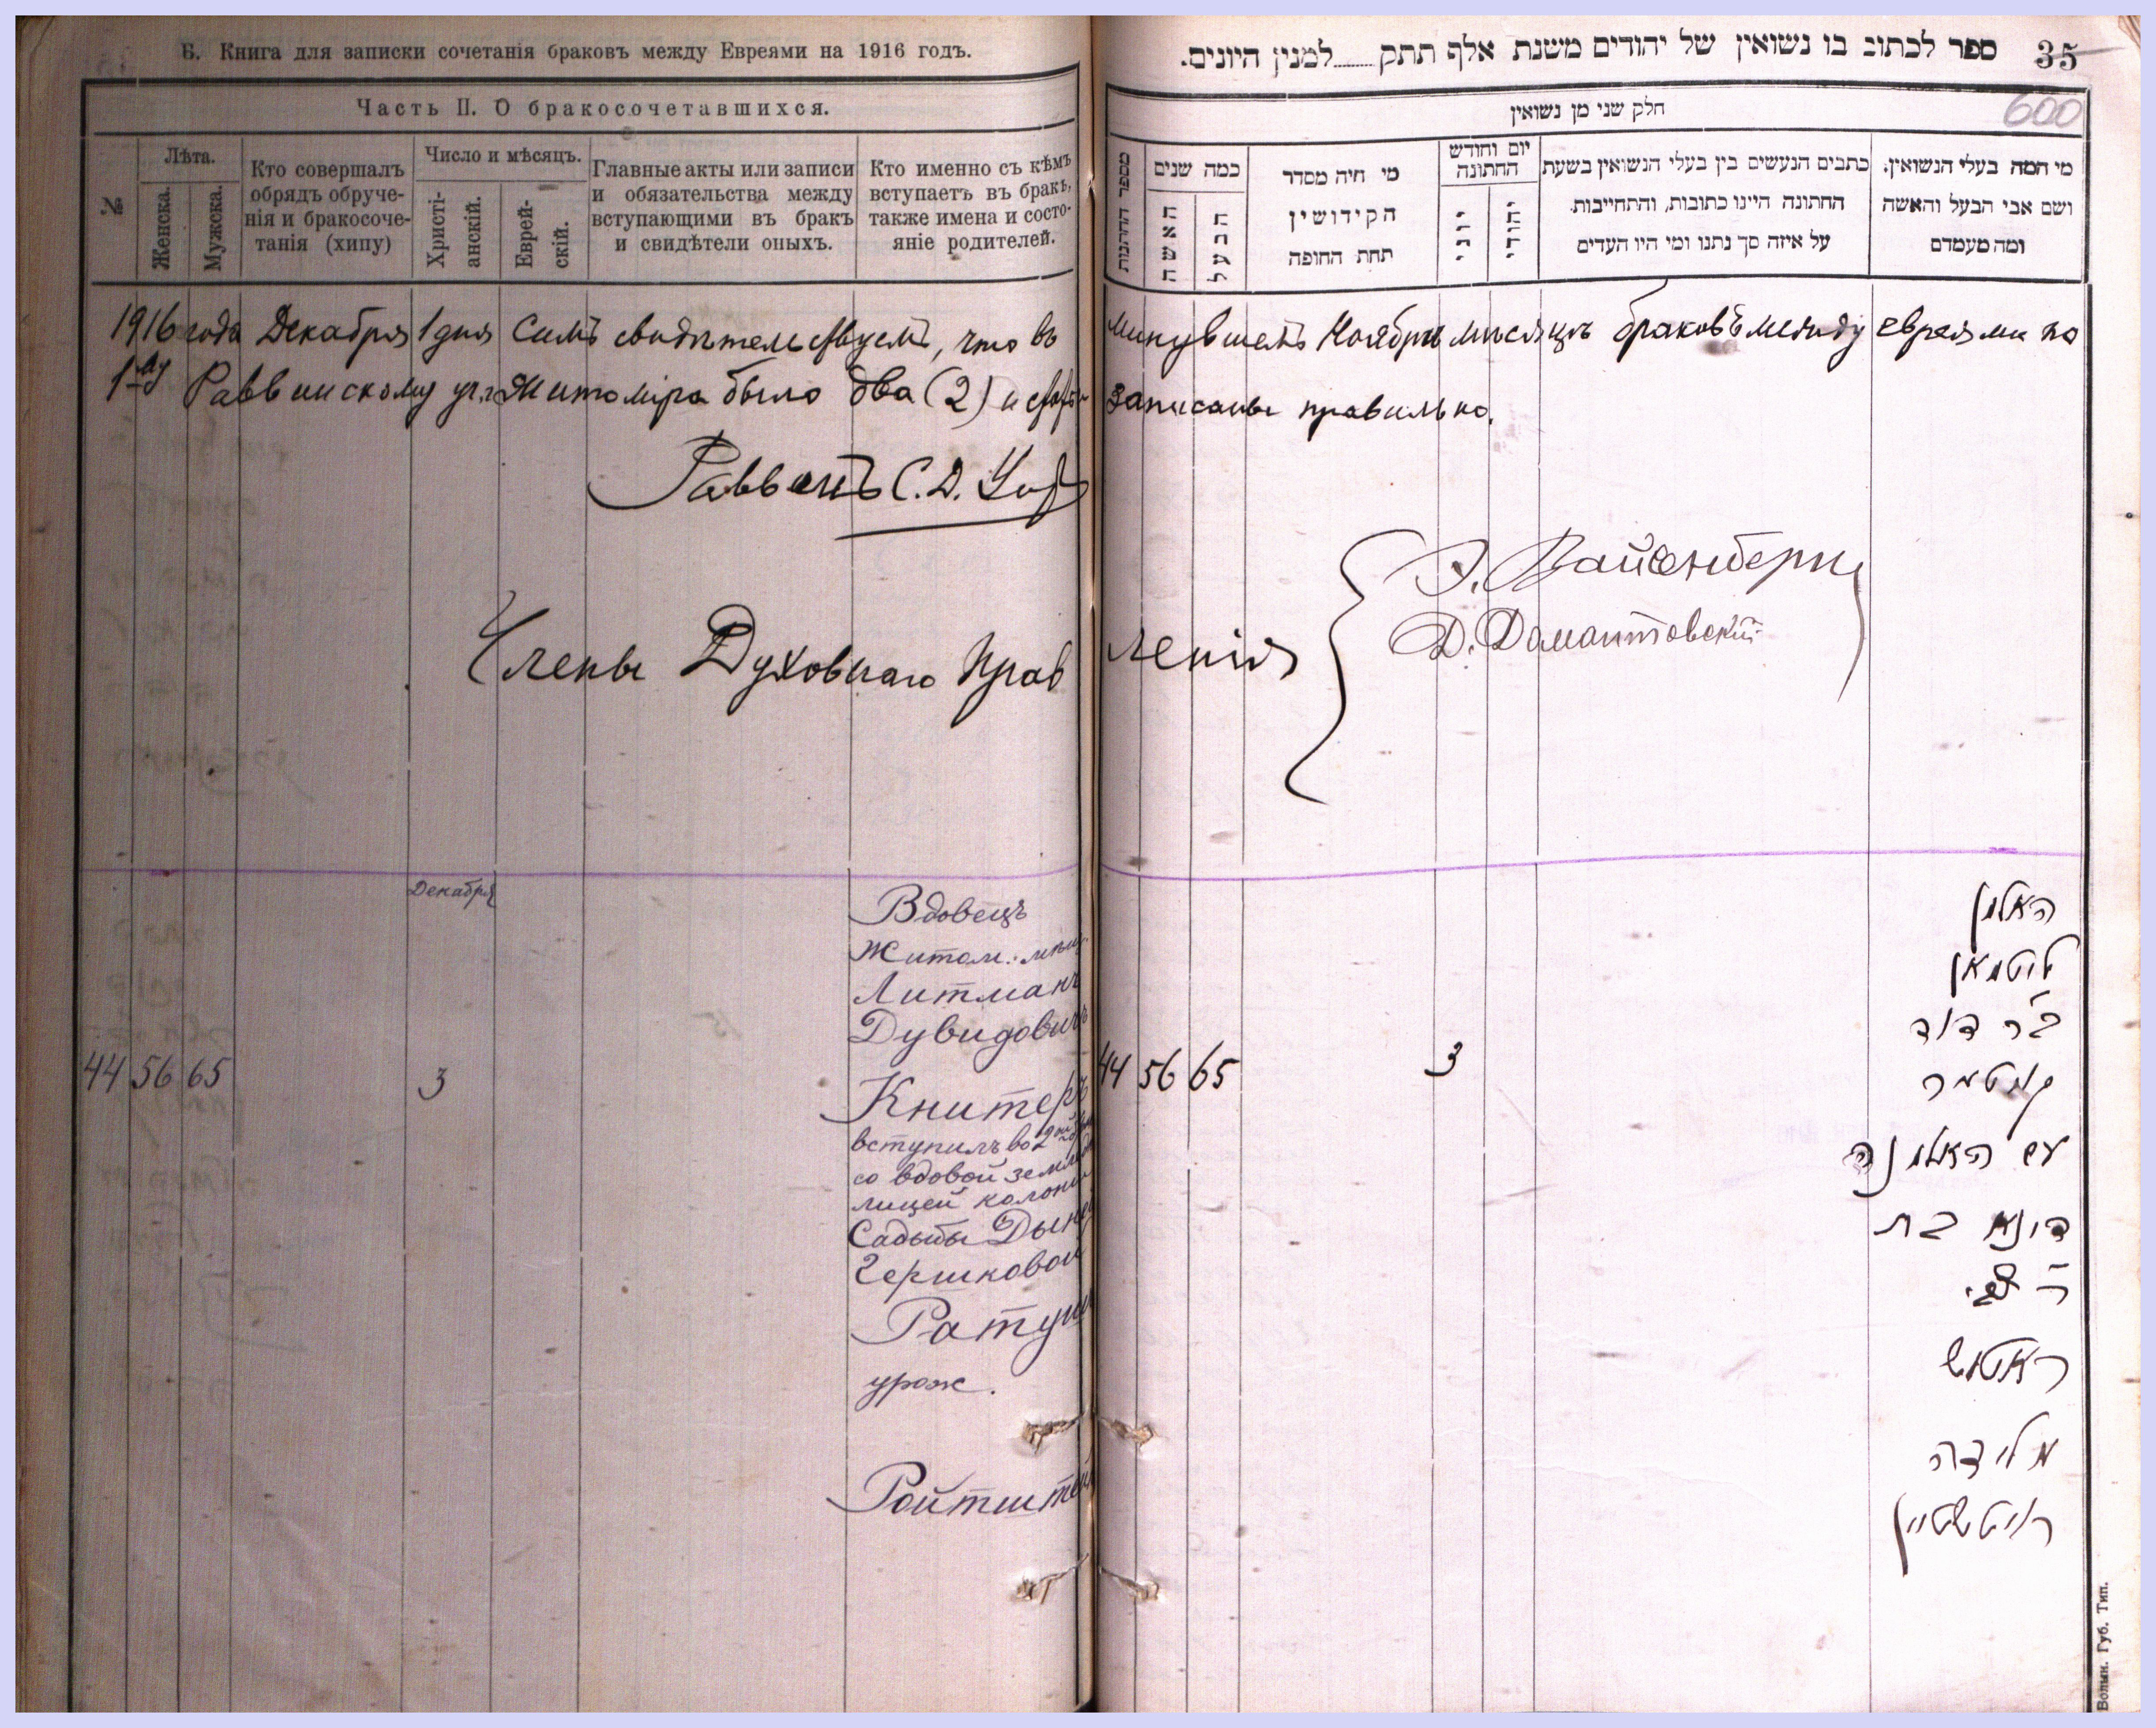 Б. Книга для записки сочетанія браковъ между Евреями на 1916 годъ.
Часть II. О бракосочетавшихся.
№
Лѣта.
Женска.
Мужска.
Кто совершалъ
обрядъ обруче-
нія и бракосоче-
танія (хипу)
Число и мѣсяцъ.
Христі-
анскій.
Еврей-
скій.
Главные акты или записи
и обязательства между
вступающими въ бракъ
и свидѣтели оныхъ.
Кто именно съ кѣмъ
вступаетъ въ бракъ,
также имена и состо-
яніе родителей.
ספר לכתוב בו נשואין של יהודים משנת אלף תתק למנין היונים.
35
600
חלק שני מן נשואין
מספר החתונות
כמה שנים
האשה
הבעל
מי היה מסדר
הקידושין
תחת החופה
יום וחודש
החתונה
יוני
יהודי
כתבים הנעשים בין בעלי הנשואין בשעת
החתונה היינו כתובות, והתחייבות
על איזה סך נתנו ומי היו העדים
מי המה בעלי הנשואין.
ושם אבי הבעל והאשה
ומה מעמדם
1916 года Декабря 1 дня Симъ свидѣтельствуемъ, что въ минувшемъ Ноябрѣ мѣсяцѣ браковъ между евреями по
1му Раввинскому уч. г. Житоміра было два (2) и записаны правильно.
Раввинъ С. Д.
Члены Духовнаго Правленія
Э. Вайсенбергъ
Д. Домантовскій
Декабря
44 56 65
3
Вдовецъ
Житом. мѣщ.
Литманъ
Дувидовичъ
Книтеръ
вступилъ во 2й
со вдовой земле
лицей колоніи
Садыбы Дыней
Гершковой
Ратуш
урож.
Ройтштей
44 56 65
3
האלמן
ליטמאן
ב״ר דוד
קניטער
עם האלמנה
דינא בת
ר׳ צבי
ראטוש
מלידה
רויטשטיין
Волын. Губ. Тип.